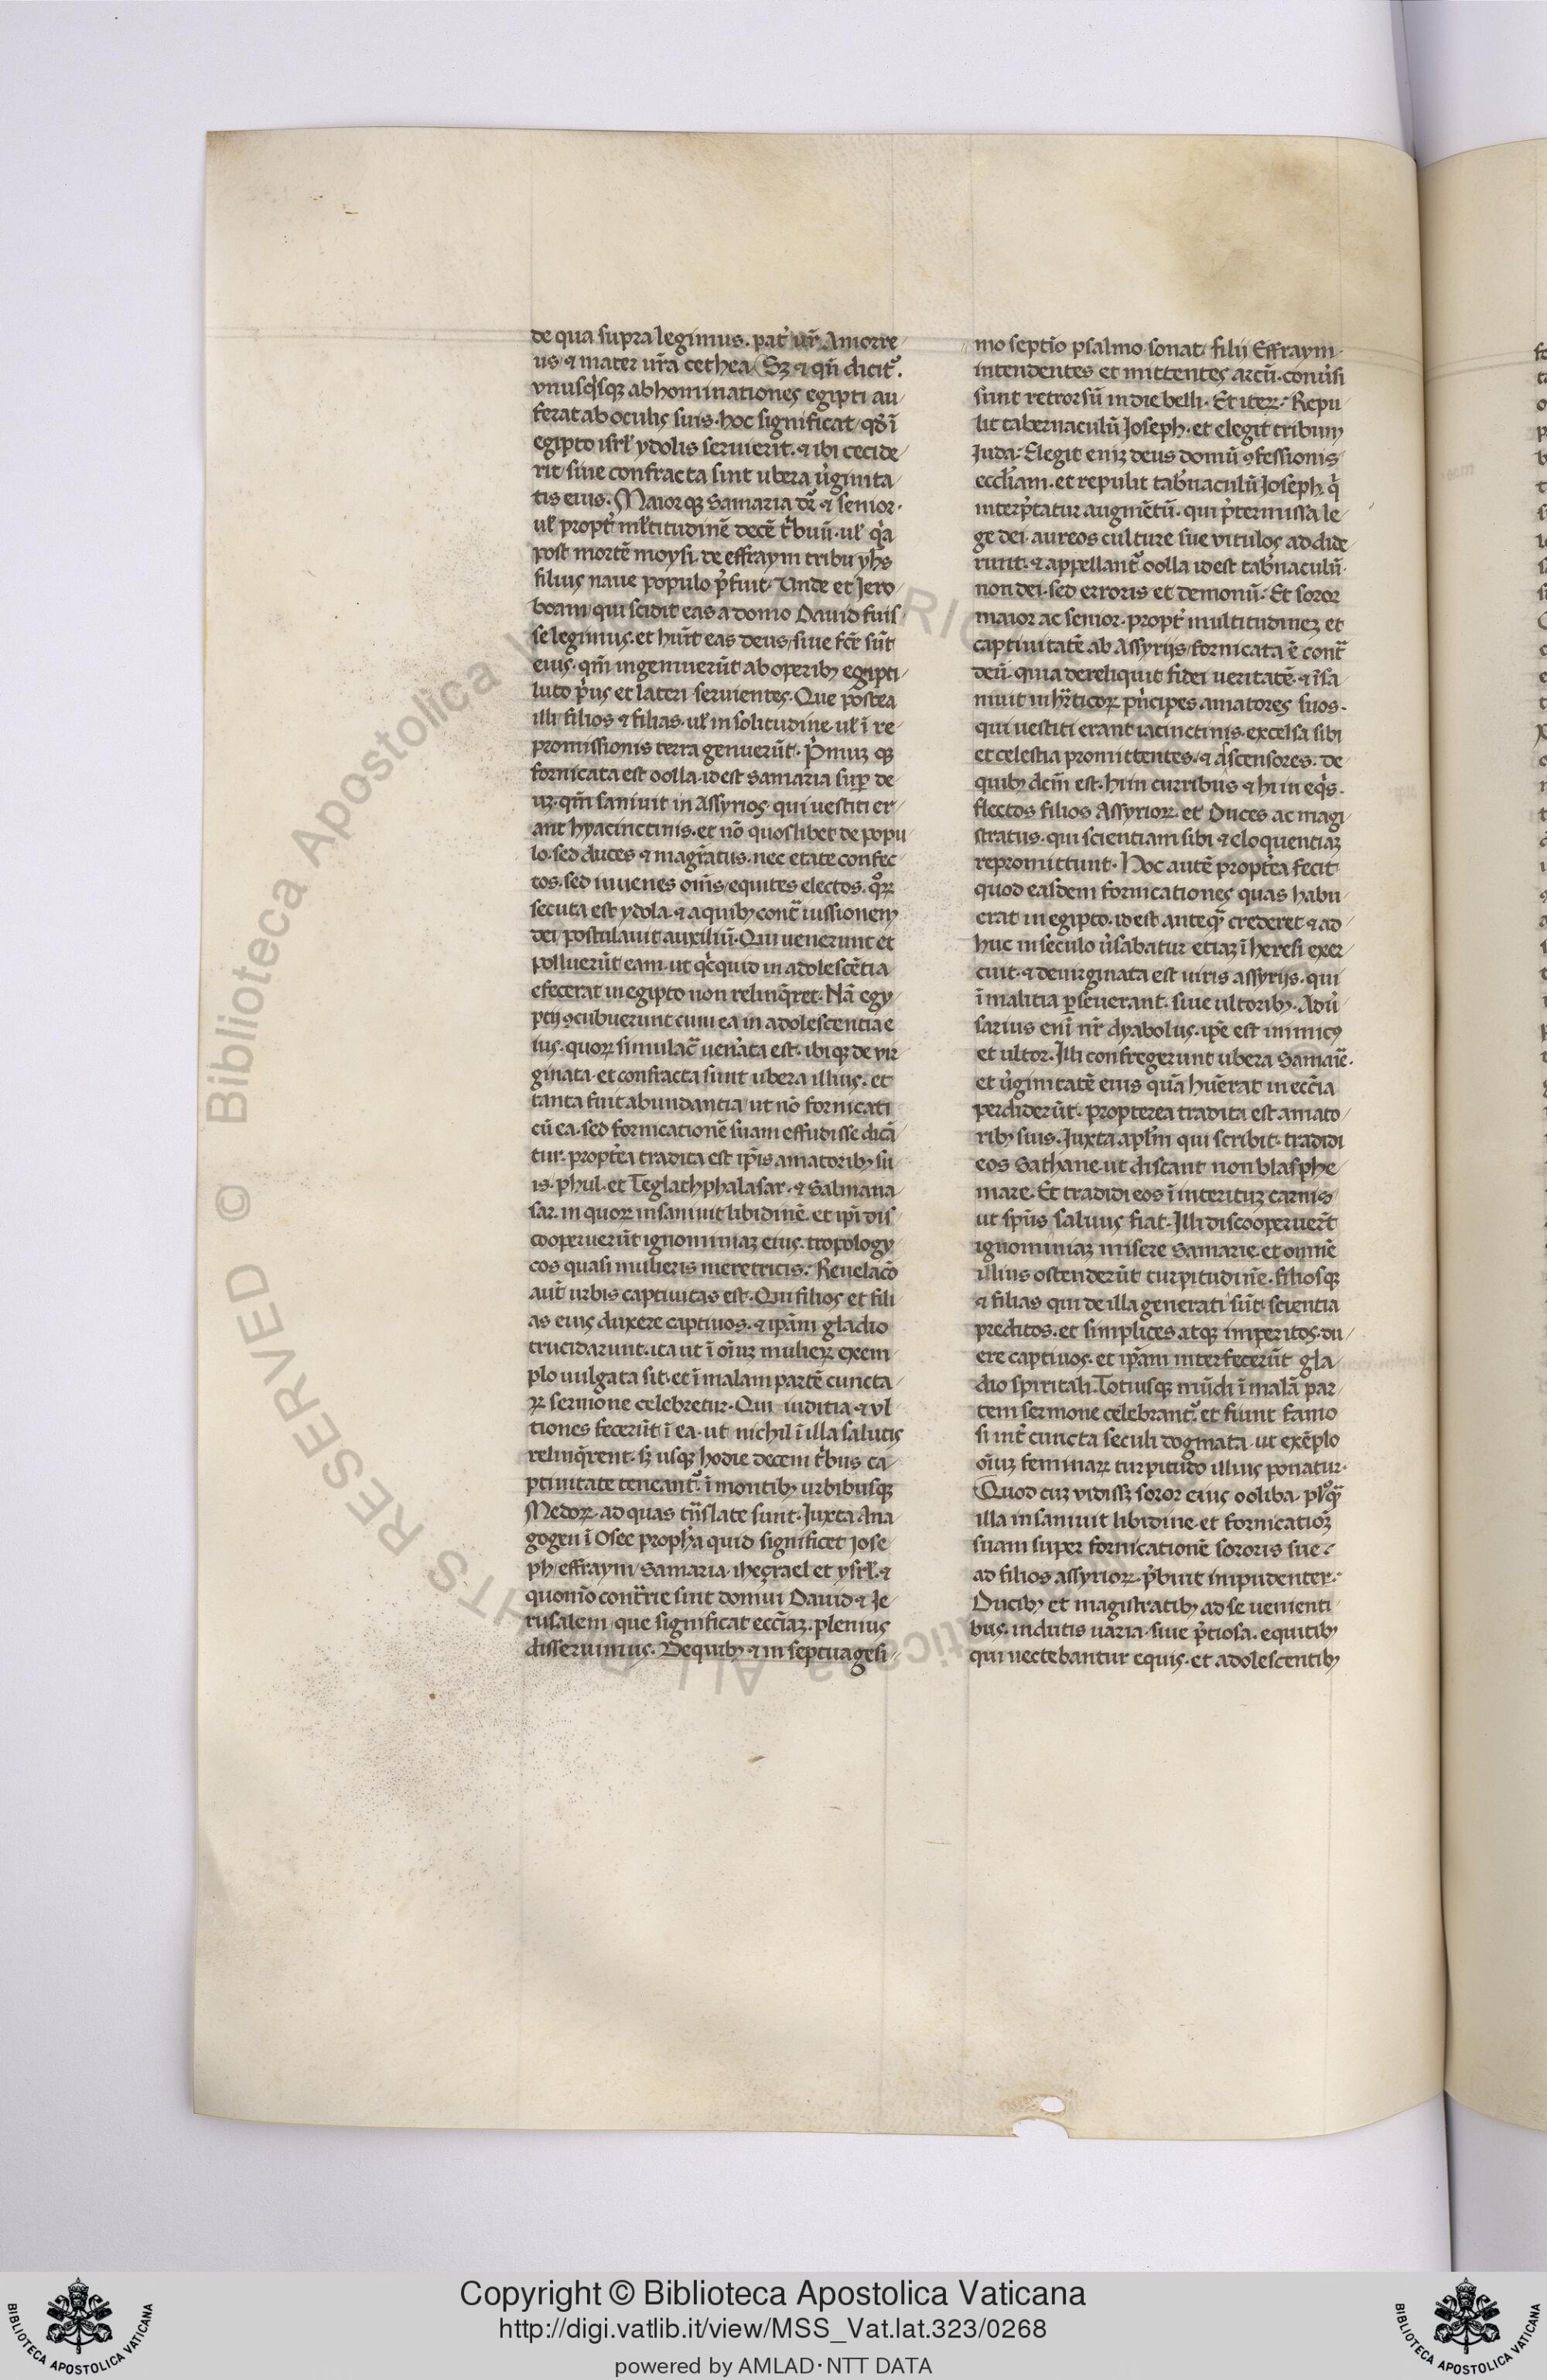 de qua supra legimus. pat͛ ur̄ Amorre
us ⁊ mater ur̄a cethea. Sꝫ ⁊ qn̄ dicit᷑.
vnusq̇sqꝫ abhominationes egipti au
ferat ab oculis suis. hoc significat qđ ī
egipto isrł ydolis seruierit. ⁊ ibi cecide
rit siue confracta sint ubera u͛ginita
tis eius. Maiorqꝫ Samaria dr̄ ⁊ senior.
uł propt͛ mł̓titudinē decē t̓buū. uł q̓a
post mortē moysi. de effraym tribu yhs̄
filius naue populo p̄fuit. Unde et Jero
boam qui scidit eas a domo Dauid fuis
se legimus. et hūt eas deus siue fc̄e sūt
eius. qm̄ ingemuerūt ab operibꝫ egipti
luto p̓us et lateri seruientes. Que postea
illi filios ⁊ filias. uł in solitudine. uł ī re
promissionis terra genuerūt. P̓muꝫ qꝫ
fornicata est oolla. id est Samaria suꝑ de
uꝫ. qm̄ saniuit in Assyrios qui uestiti er
ant hyacinctinis. et nō quoslibet de popu
lo. sed duces ⁊ magr̄atus. nec etate confec
tos. sed iuuenes om̄s equites electos. qͦꝝ
secuta est ydola. ⁊ a quibꝫ cont̄ iussionem
dei postulauit auxiliū. Qui uenerunt et
polluerūt eam. ut qc̓quid in adolescētia
efecerat in egipto non relinq̄ret. Nā egy
ptij ꝯcubuerunt cum ea in adolescentia e
ius. quoꝝ simulac̄ uen̄ata est. ibiqꝫ de vir
ginata. et confracta sunt ubera illius. et
tanta fuit abundantia ut nō fornicati
cū ea. sed fornicationē suam effudisse dicā
tur. propt̄ea tradita est ip̄is amatoribꝫ su
is. phul. et Teglathphalasar. ⁊ Salmana
sar. in quoꝝ insaniuit libidinē. et ip̄i dis
cooperuerūt ignominiaꝫ eius. tropology
cos quasi mulieris meretricis. Reuelac̄o
aut̄ urbis captiuitas est. Qui filios et fili
as eius duxere captiuos. ⁊ ip̄am gladio
trucidarunt. ita ut ī oīuꝫ mulieꝝ exem
plo uulgata sit. et ī malam partē cuncta
ꝝ sermone celebretur. Qui iuditia ⁊ vl
tiones fecerūt ī ea. ut nichil ī illa salutis
relinq̄rent. sꝫ usqꝫ hodie decem t̓bus ca
ptiuitate teneant᷑. ī montibꝫ urbibusqꝫ
Medoꝝ. ad quas tn̄slate sunt. Juxta Ana
gogen ī Osee proph̄a quid significet Jose
ph effraym Samaria. iheçrael et ysrł. ⁊
quom̄o cont̄rie sint domui Dauid ⁊ Je
rusalem que significat ecc̄iaꝫ. plenius
disseruimus. De quibꝫ ⁊ in septuagesi
mo septīo psalmo sonat filij Effraym
intendentes et mittentes arcū. conu͛si
sunt retrorsū in die belli. Et iteꝝ. Repu
lit tabernaculū Joseph. et elegit tribum
Juda. Elegit eniꝫ deus domū ꝯfessionis
eccłiam. et repulit tab̄naculū Joseph. q̓
interp̄tatur augmētū. qui p̄termissa le
ge dei. aureos culture sue vitulos addide
runt. ⁊ appellant᷑ oolla id est tab̄naculū.
non dei. sed erroris et demonū. Et soror
maior ac senior. propt͛ multitudineꝫ et
captiuitatē ab Assyrijs fornicata ē cont̄
deū. quia dereliquit fidei ueritatē. ⁊ īsa
niuit in hr̄ticoꝝ p̓ncipes. amatores suos.
qui uestiti erant iacinctinis. excelsa sibi
et celestia promittentes. ⁊ ascensores. de
quibꝫ dc̄m est. hi in curribus ⁊ hi in eq̓s.
flectos filios Assyrioꝝ. et Duces ac magi
stratus. qui scientiam sibi ⁊ eloquentiaꝫ
repromittunt. Hoc autē propt̄ea fecit
quod easdem fornicationes quas habu
erat in egipto. id est anteqͣ̄ crederet ⁊ ad
huc in seculo u͛sabatur etiaꝫ ī heresi exer
cuit. ⁊ deuirginata est uiris assyrijs. qui
ī malitia ꝑseuerant. siue ultoribꝫ. Adu͛
sarius enī nr̄ dyabolus. ip̄e est inimicꝰ
et ultor. Illi confregerunt ubera Samar̄e.
et u͛ginitatē eius quā hūerat in ecc̄ia
perdiderūt. propterea tradita est amato
ribꝫ suis. Juxta apłm qui scribit. tradidi
eos Sathane. ut discant non blasphe
mare. Et tradidi eos ī interituꝫ carnis
ut sp̄us saluus fiat. Illi discooperuer̄t
ignominiaꝫ misere Samarie. et omnē
illius ostenderūt turpitudinē. filiosqꝫ
⁊ filias qui de illa generati sūt. scientia
preditos. et simplices atqꝫ imperitos. du
ere captiuos. et ip̄am interfecerūt gla
dio spiritali. Totiusqꝫ mūdi ī malā par
tem sermone celebrant᷑. et fiunt famo
si int͛ cuncta seculi dogmata. ut exēplo
oīuꝫ feminaꝝ turpitudo illius ponatur.
Quod cuꝫ vidissꝫ soror eius ooliba. plꝰqͣ̄
illa insaniuit libidine. et fornicatioꝫ
suam super fornicationē sororis sue
ad filios assyrioꝝ. p̄buit impudenter.
Ducibꝫ et magistratibꝫ ad se uenienti
bus. indutis uaria. siue p̄tiosa. equitibꝫ
qui uectebantur equis. et adolescentibꝫ
© Biblioteca Apostolica Vaticana ALL RIGHTS RESERVED
Copyright © Biblioteca Apostolica Vaticana
http://digi.vatlib.it/view/MSS_Vat.lat.323/0268
powered by AMLAD·NTT DATA
BIBLIOTECA APOSTOLICA VATICANA
BIBLIOTECA APOSTOLICA VATICANA